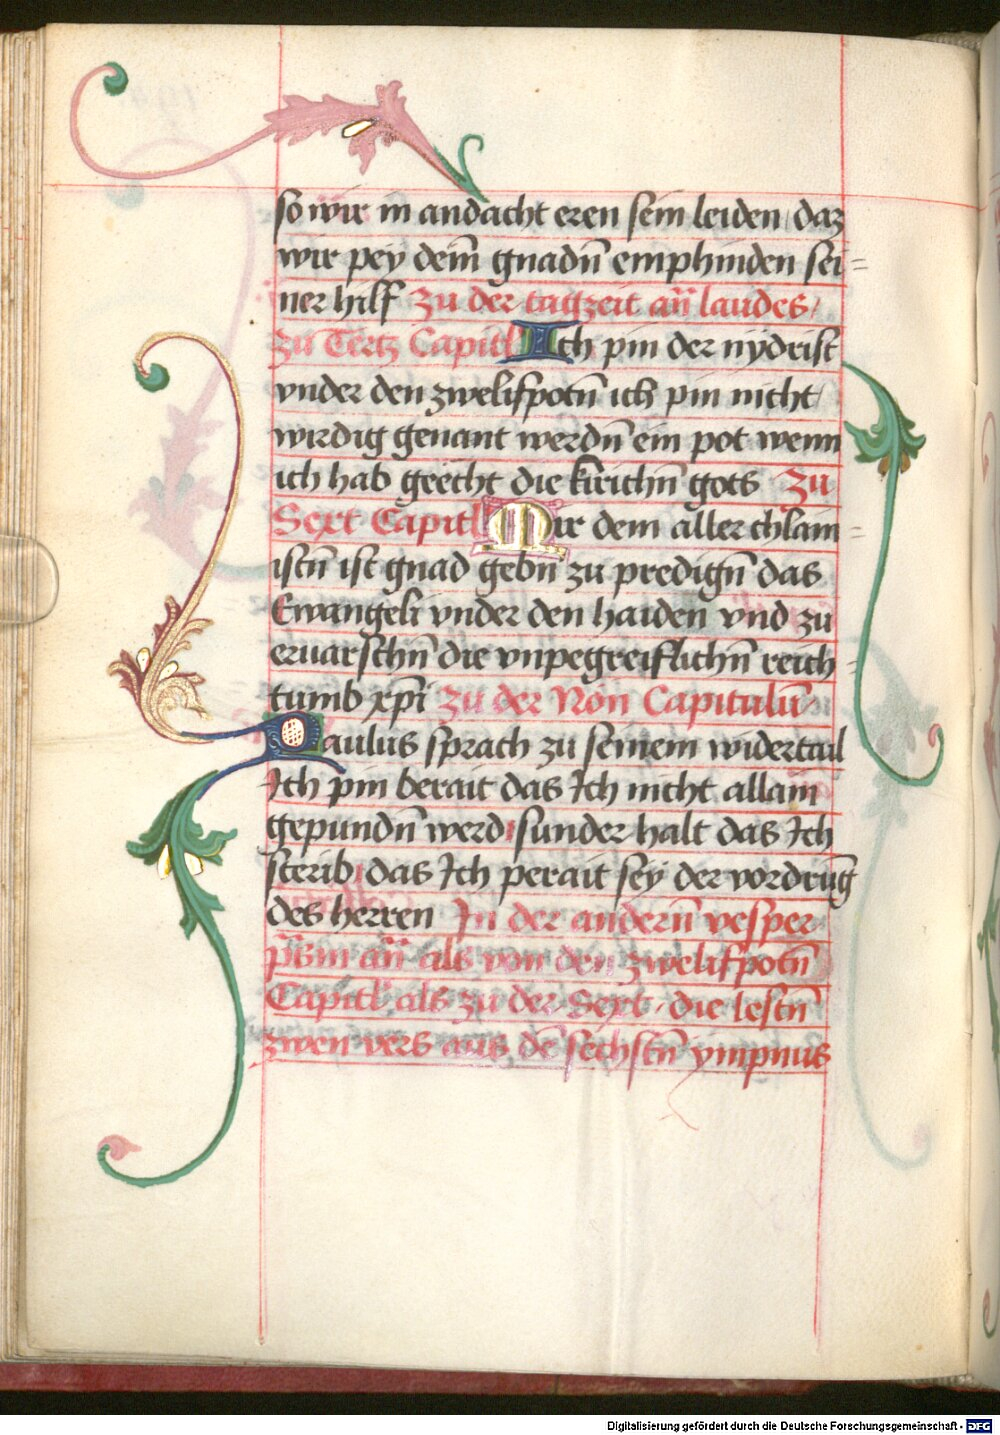 so wir in andacht eren sein leiden / daz
wir pey deīn gnadn̄ emphinden sei=
ner hilf zu der tagzeit an̄ laudes /
zu Tertz Capitl Ich pin der nydrist
vnder den zwelifpotn̄ ich pin nicht /
wirdig genant werdn̄ ein pot wenn
ich hab geecht die kirichn̄ gots zu
Sext Capitl Mir dem aller chlam=
istn̄ ist gnad gebn̄ zu predign̄ das
Ewangeli vnder den haiden vnd zu
eruarschn̄ die vnpegreiflichn̄ reich=
tumb xp̄i zu der Non Capitulū
Paulus sprach zu seinem widertail
Ich pin berait das Ich nicht allain
gepundn̄ werd sunder halt das Ich
sterib das Ich perait sey der vordrūg
des herren In der andern̄ vesper
ps̄m an̄ als von den zwelifpotn̄
Capitl als zu der Sext · die lestn̄
zwen vers aus dē sechstn̄ ympnus
Digitalisierung gefördert durch die Deutsche Forschungsgemeinschaft - DFG